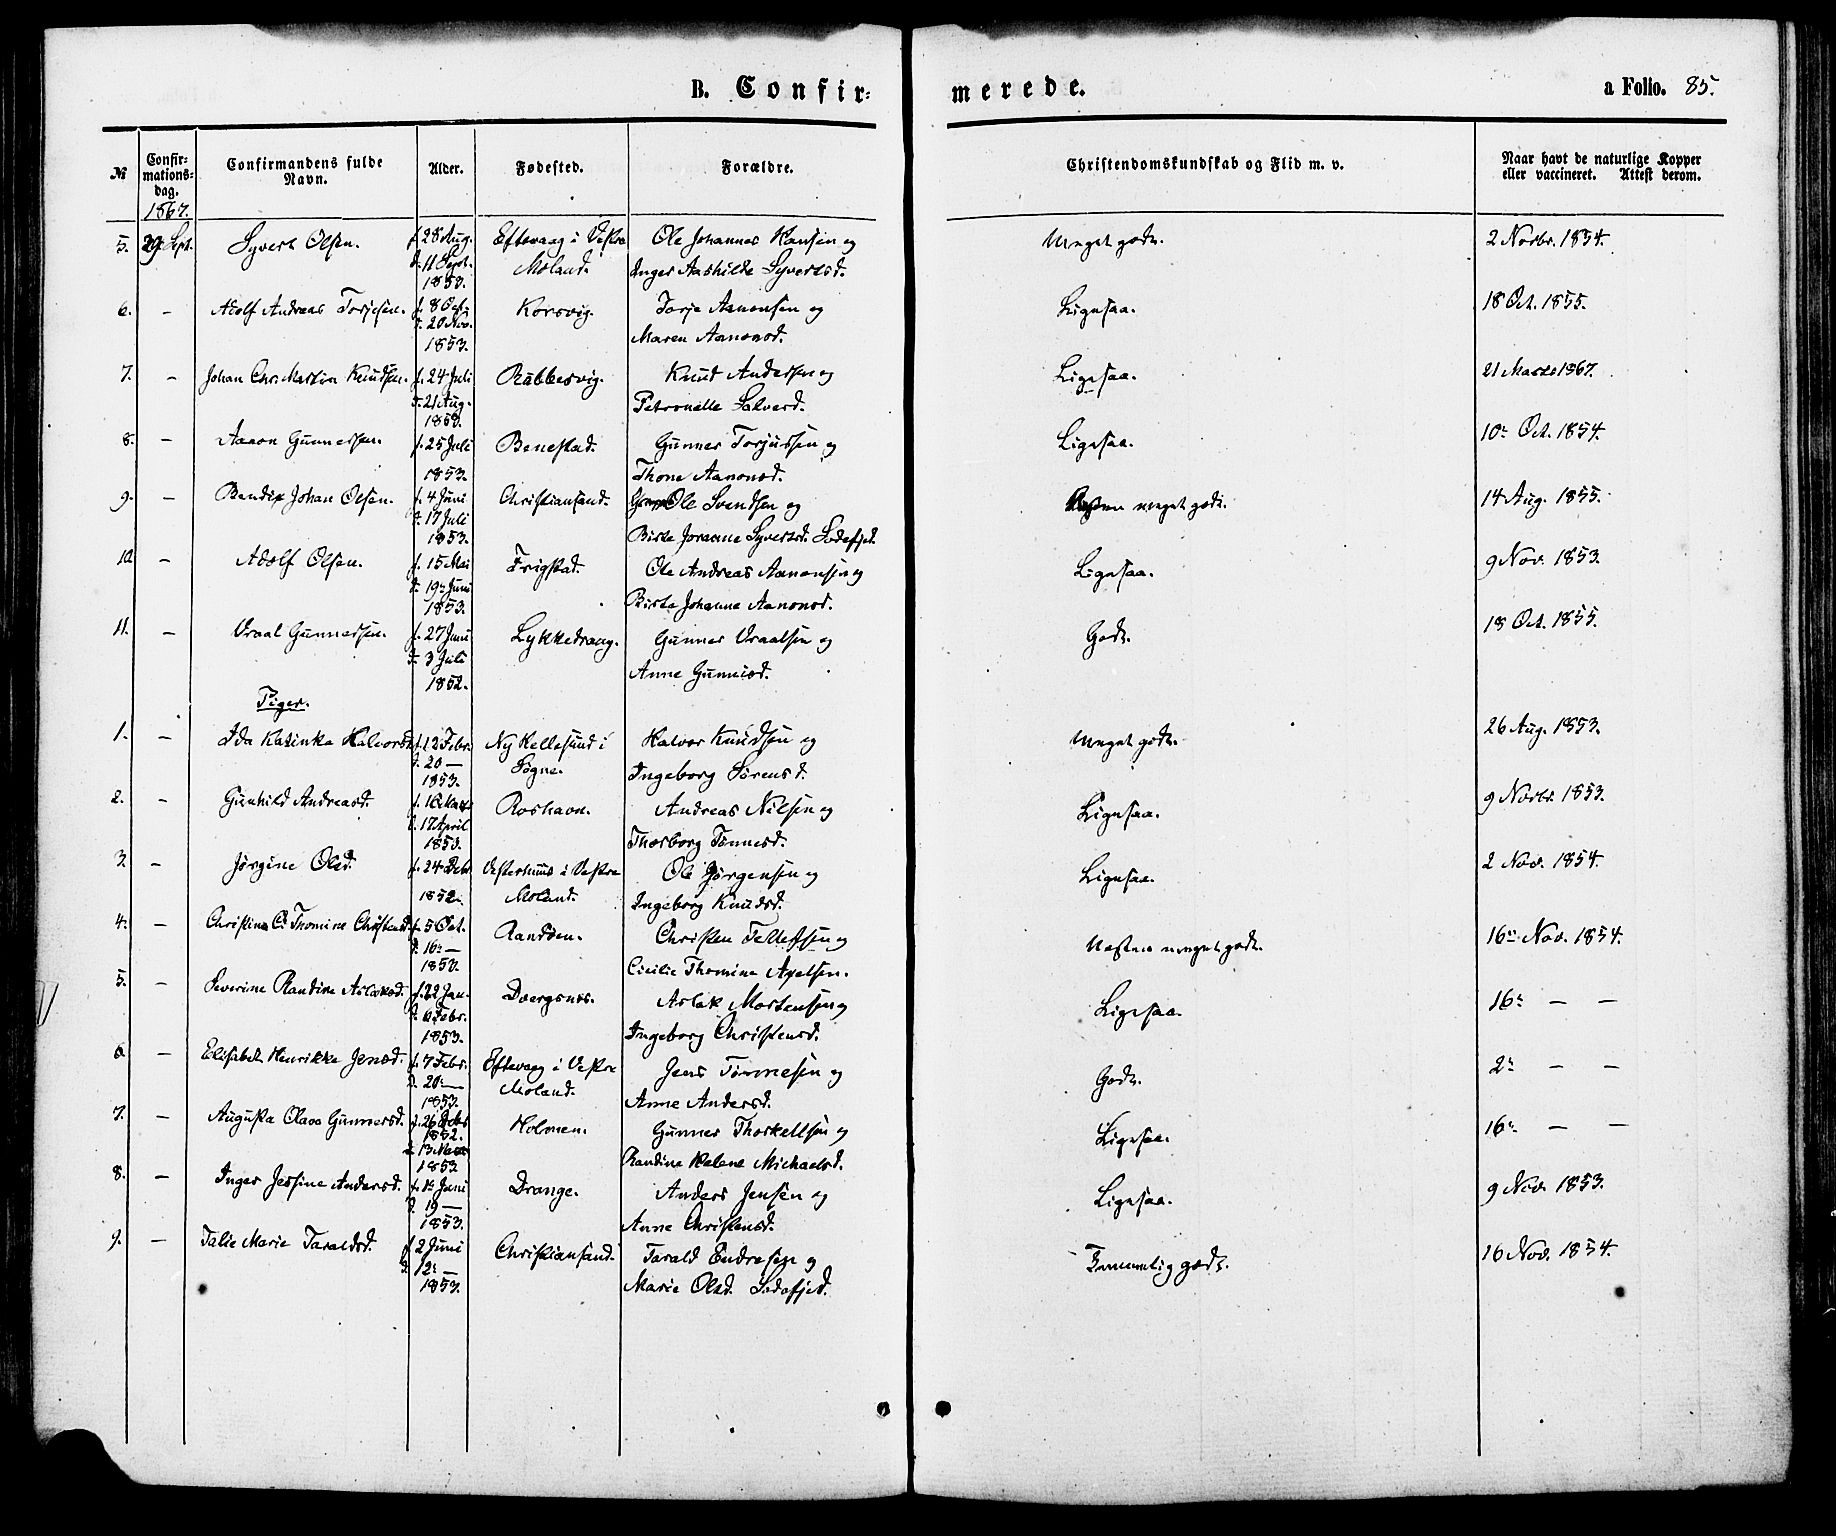 B. Confirmerede.
a Folio. 85.
№ Confirmationsdag. Confirmandens fulde Navn. Alder. Fødested. Forældre. Christendomskundskab og Flid m. v. Naar havt de naturlige Kopper eller vaccineret. Attest derom.
1867.
5. 29 Sept. Syvert Olsen. f. 28 Aug. Eftevaag i Vestre Ole Johannes Hansen og Meget godt. 2 Novbr. 1854.
d. 11 Sept. Moland. Inger Aashilde Syvertsd.
1853.
6. – Adolf Andreas Torjesen. f. 8 Oct. Korsvig. Torje Aanonsen og Ligesaa. 18 Oct. 1855.
d. 20 Nov. Maren Aanonsd.
1853.
7. – Johan Chr. Martin Knudsen. f. 24 Juli Rabbesvig. Knud Andersen og Ligesaa. 21 Marts 1867.
d. 21 Aug. Petronelle Salvesd.
1853.
8. – Aanon Gunnersen. f. 25 Juli Benestad. Gunner Torjussen og Ligesaa. 10de Oct. 1854.
1853. Thone Aanonsd.
9. – Bendix Johan Olsen. f. 4 Juni Christiansand. Ole Svendsen og Næsten meget godt. 14 Aug. 1855.
d. 17 Juli Birte Johanne Syvertsd. Sodefjed.
1853.
10. – Adolf Olsen. f. 15 Mai Frigstad. Ole Andreas Aanonsen og Ligesaa. 9 Nov. 1853.
d. 19de Juni Birte Johanne Aanonsd.
1853.
11. – Vraal Gunnersen. f. 27 Juni Lykkedrang. Gunner Vraalsen og Godt. 18 Oct. 1855.
d. 3 Juli Anne Gunnisd.
1852.
Piger.
1. – Ida Katinka Halvorsd. f. 12 Febr. Ny Hellesund i Halvor Knudsen og Meget godt. 26 Aug. 1853.
d. 20 — Søgne. Ingeborg Sørensd.
1853.
2. – Gunhild Andreasd. f. 16 Marts Roshavn. Andreas Nilsen og Ligesaa. 9 Novbr. 1853.
d. 17 April Thorborg Tønnesd.
1853.
3. – Jørgine Olsd. f. 24 Debr. Vesterhuus i Vestre Ole Jørgensen og Ligesaa. 2 Nov. 1854.
1852. Moland. Ingeborg Knudsd.
4. – Christine C. Thomine Christensd. f. 5 Oct. Randøen. Christen Tellefsen og Næsten meget godt. 16de Nov. 1854.
d. 16de — Cicilie Thomine Axelsen.
1853.
5. – Severine Randine Aslaksd. f. 22 Jan. Dvergsnes. Aslak Mortensen og Ligesaa. 16de — —
d. 6 Febr. Ingeborg Christensd.
1853.
6. – Elisabet Henrikke Jensd. f. 7 Febr. Eftevaag i Vestre Jens Tønnesen og Godt. 2de — —
d. 20de — Moland. Anne Andersd.
1853.
7. – Augusta Olava Gunnersd. f. 26 Debr. Holmen. Gunner Thorkelsen og Ligesaa. 16de — —
1852.
d. 13 Marts Randine Helene Michaelsd.
1853
8. – Inger Jessine Andersd. f. 1ste Juni Drange. Anders Jensen og Ligesaa. 9 Nov. 1853.
d. 19 — Anne Christensd.
1853.
9. – Talie Marie Taraldsd. f. 2 Juni Christiansand. Tarald Endresen og Temmelig godt. 16 Nov. 1854.
d. 12te — Marie Olsd. Sodefjed.
1853.